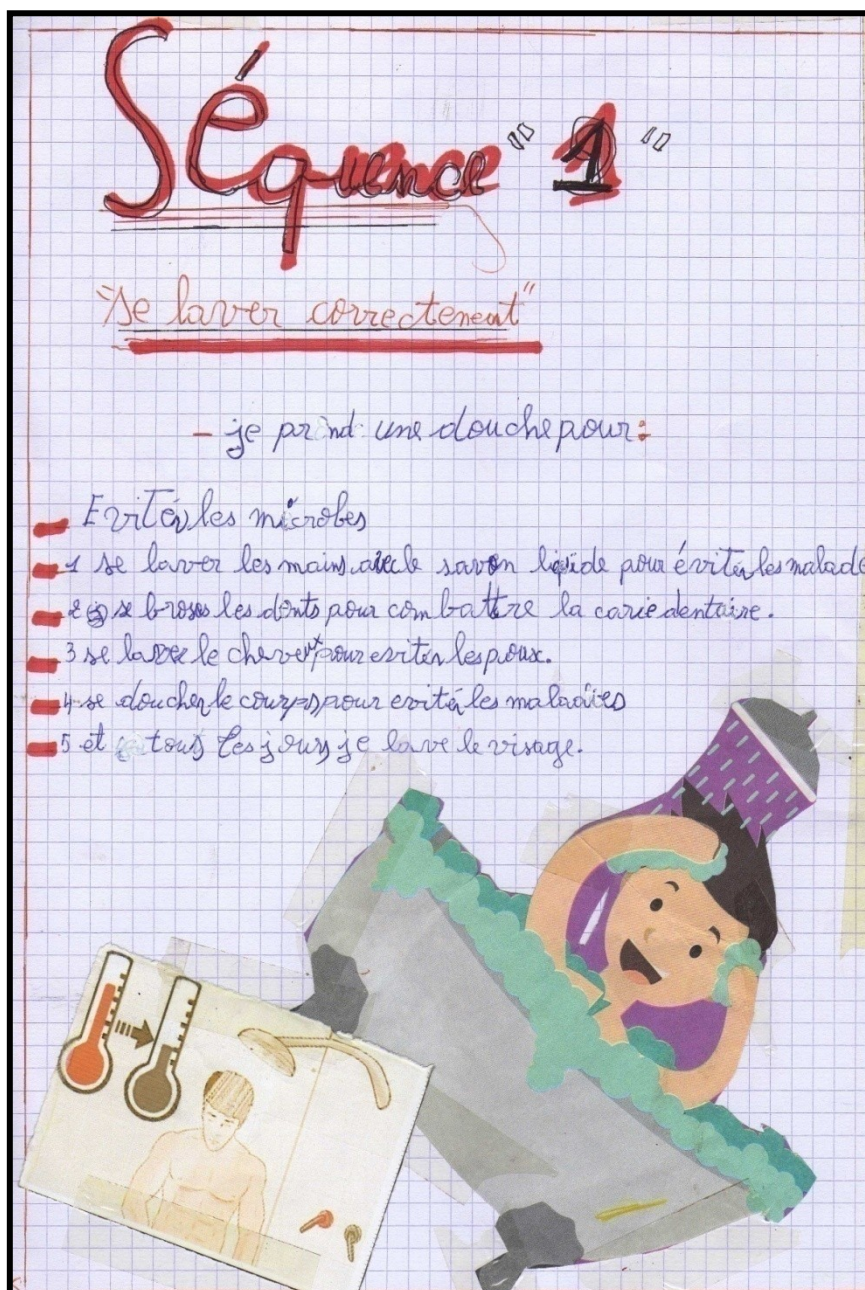 Séquence "1"
"Se laver correctement"
- je prind une douche pour:
Eviter les microbes
1 se laver les mains avec le savon liqide pour éviter les malade
2 se broses les dents pour combattre la carie dentaire.
3 se laver le cheveux pour eviter les poux.
4 se doucher le courps pour eviter les maladies
5 et tous les jours je lave le visage.